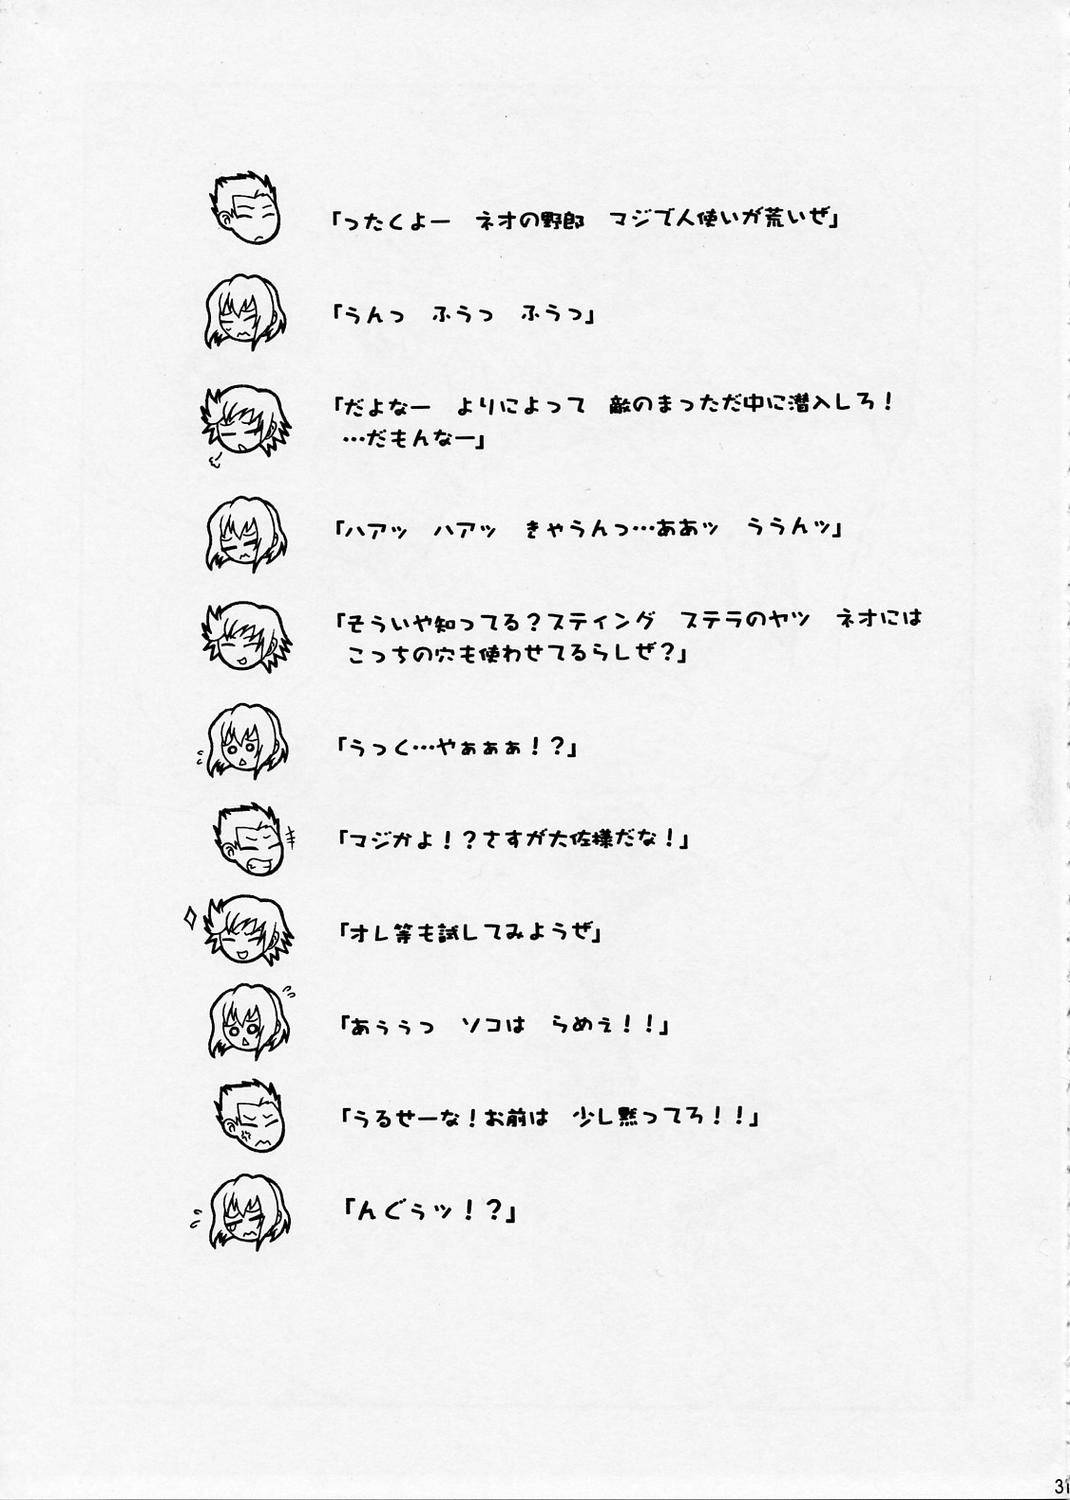 「ったくよー　ネオの野郎　マジで人使いが荒いぜ」
「うんっ　ふうっ　ふうっ」
「だよなー　よりによって　敵のまっただ中に潜入しろ！
…だもんなー」
「ハアッ　ハアッ　きゃうんっ…ああッ　ううんッ」
「そういや知ってる？スティング　ステラのヤツ　ネオには
こっちの穴も使わせてるらしぜ？」
「うっく…やぁぁぁ！？」
「マジかよ！？さすが大佐様だな！」
「オレ等も試してみようぜ」
「あぅぅっ　ソコは　らめぇ！！」
「うるせーな！お前は　少し黙ってろ！！」
「んぐぅッ！？」
31